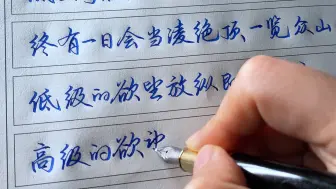 终有一日会当凌绝顶一览众山
低级的欲望放纵即
高级的欲望